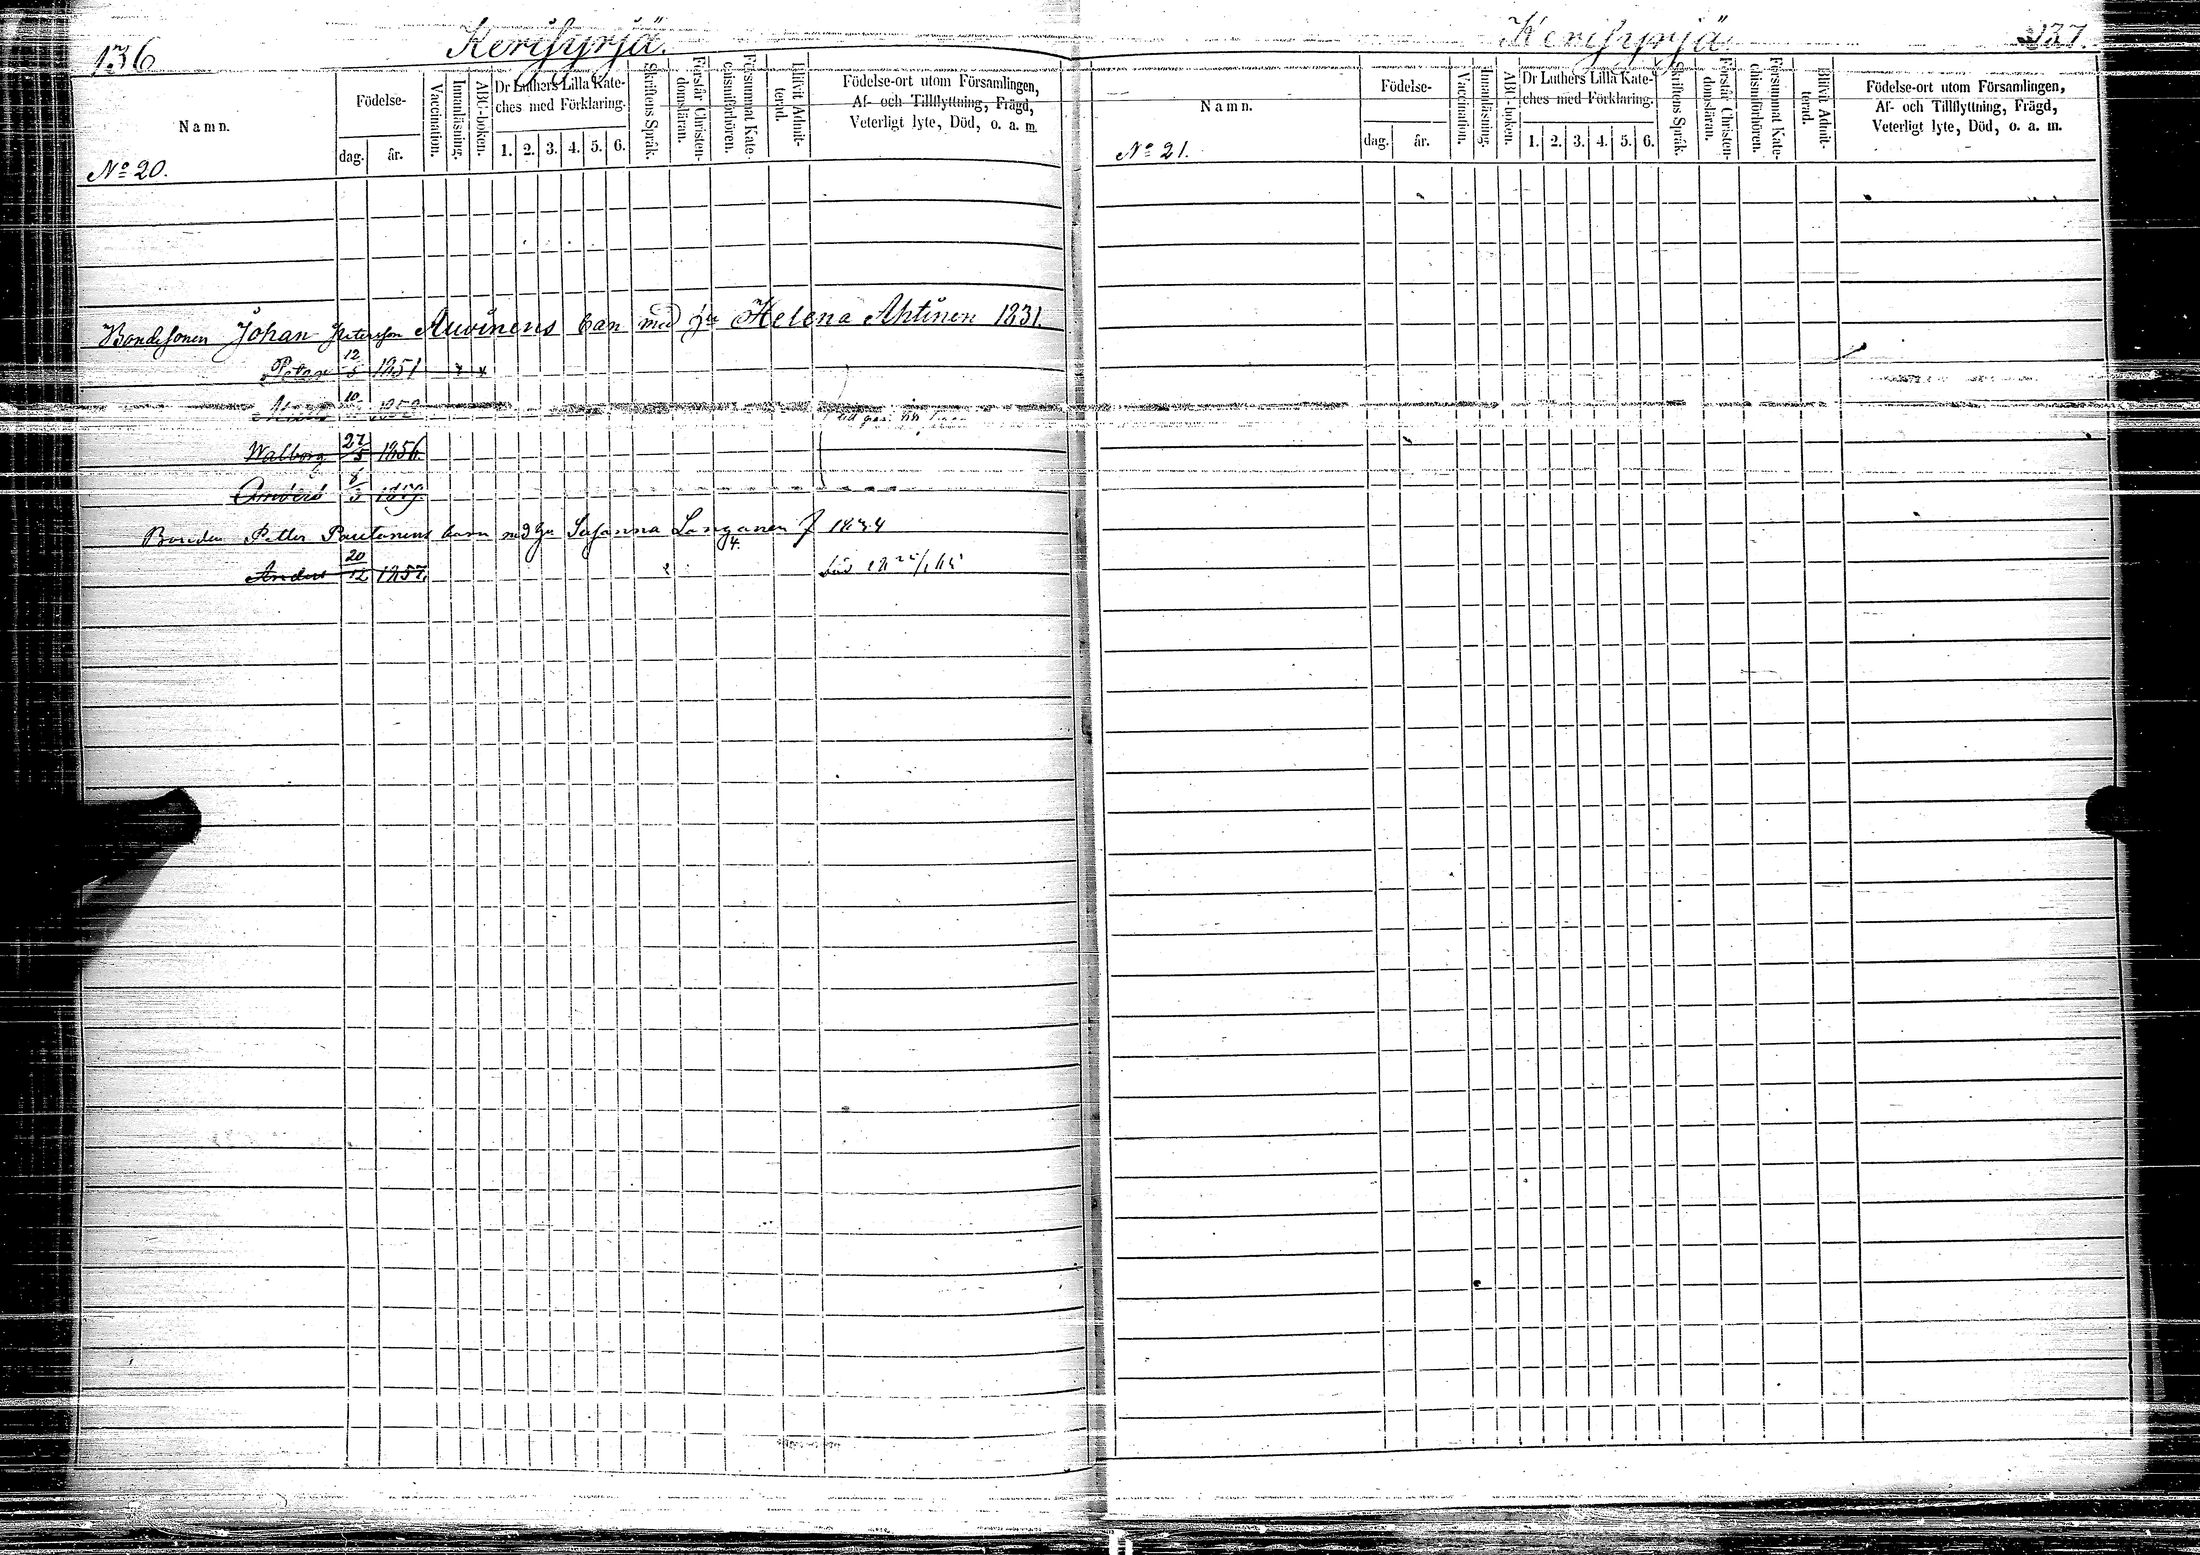 136 Kerisyrjä.
Namn.
Födelse-
dag. år.
Vaccination.
Innanläsning.
ABC-boken.
Dr Luthers Lilla Kate-
ches med Förklaring.
1. 2. 3. 4. 5. 6.
Skriftens Språk.
Förstår Christen-
domsläran.
Försummat Kate-
chismiförhören.
Blifvit Admit-
terad.
Födelse-ort utom Församlingen,
Af- och Tillflyttning, Frägd,
Veterligt lyte, Död, o. a. m.
No 20.
Bondesonen Johan Petersson Auvinens barn med hu Helena Ahtinen 1831.
Peter 12/5 1851 x x
10
Walborg 27/5 1856
Anders 1859
Bonden Petter Pautanens barn med hu Susanna f 1834
4.
Anders 20/12 1857. 2 död
Kerisyrjä 137.
Namn.
Födelse-
dag. år.
Vaccination.
Innanläsning.
ABC-boken.
Dr Luthers Lilla Kate-
ches med Förklaring.
1. 2. 3. 4. 5. 6.
Skriftens Språk.
Förstår Christen-
domsläran.
Försummat Kate-
chismiförhören.
Blifvit Admit-
terad.
Födelse-ort utom Församlingen,
Af- och Tillflyttning, Frägd,
Veterligt lyte, Död, o. a. m.
No 21.